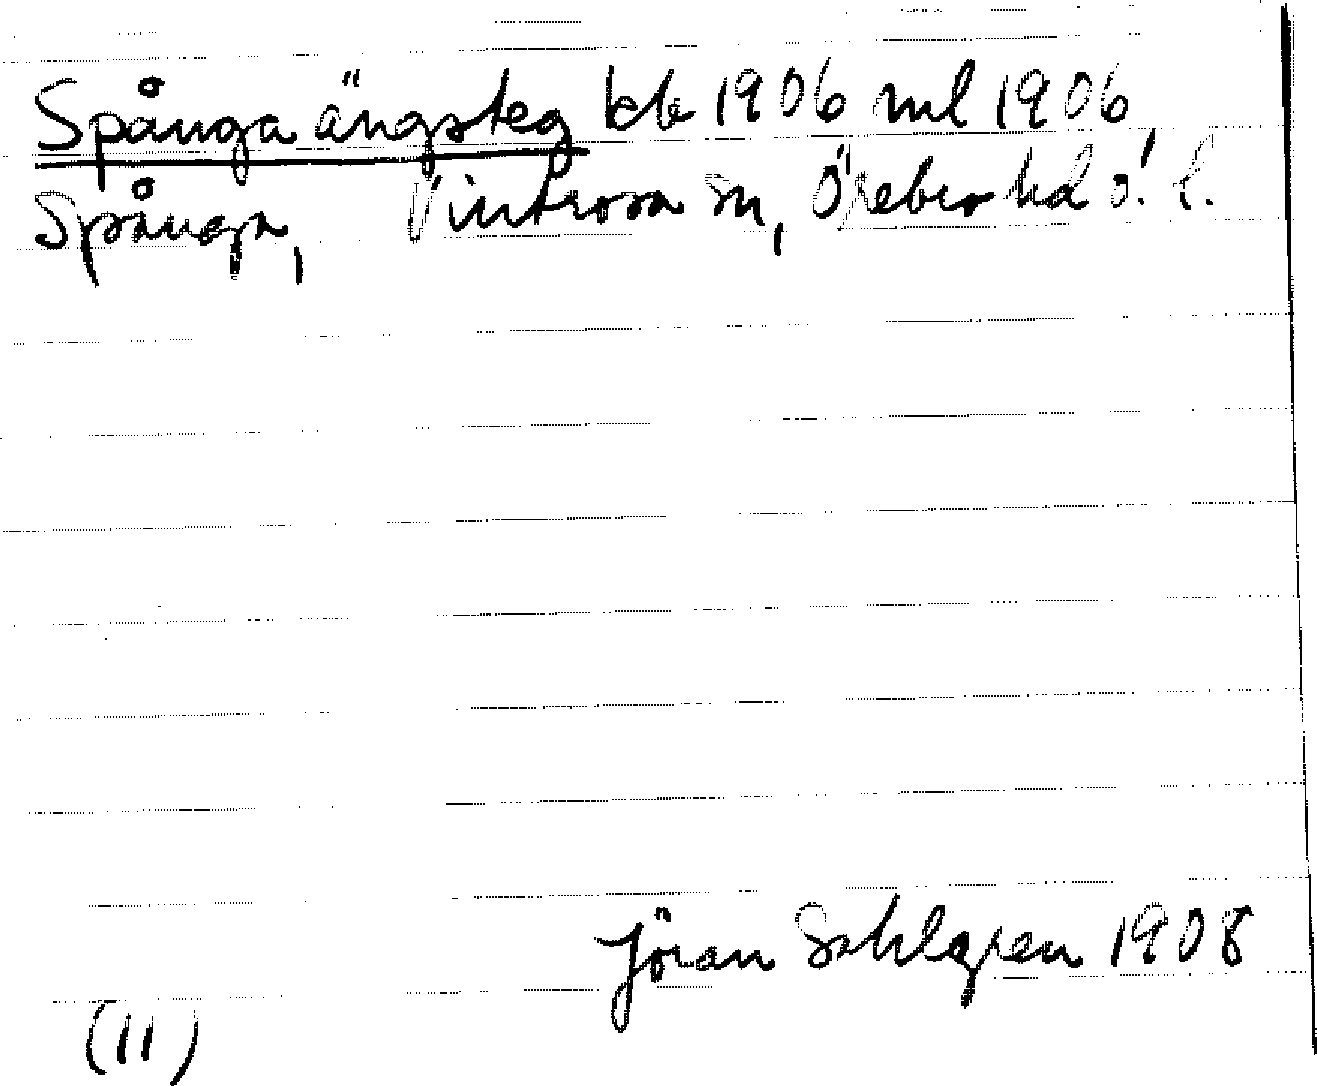 Spånga ängsteg kb 1906 ml 1906,
Spånga, Vintrosa sn, Örebro hd ö. l.
Jöran Sahlgren 1908
(11)